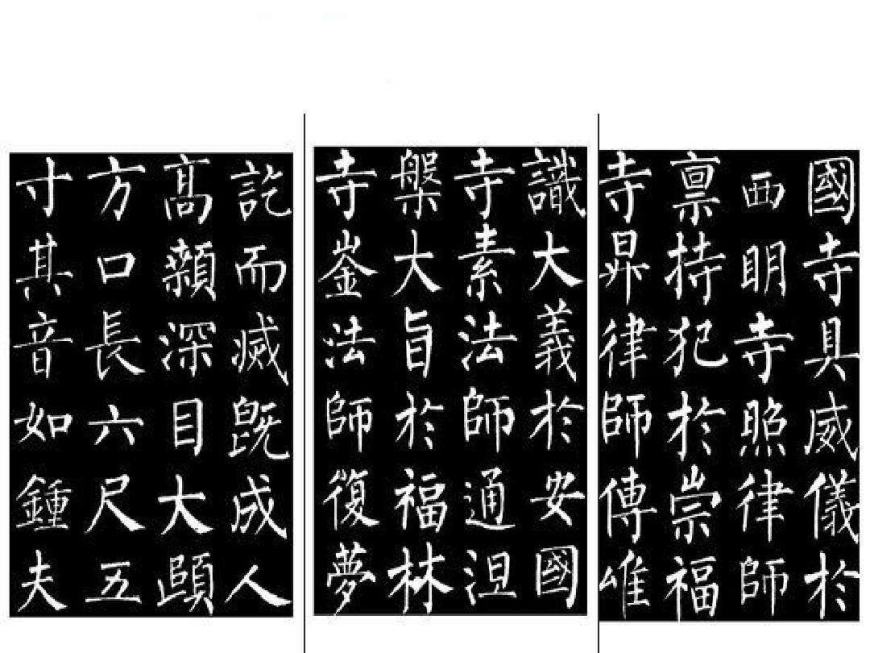 國寺具威儀於
西明寺照律師
稟持犯於崇福
寺昇律師傳唯
識大義於安國
寺素法師通涅
槃大旨於福林
寺崟法師復夢
訖而滅既成人
高顙深目大頤
方口長六尺五
寸其音如鍾夫